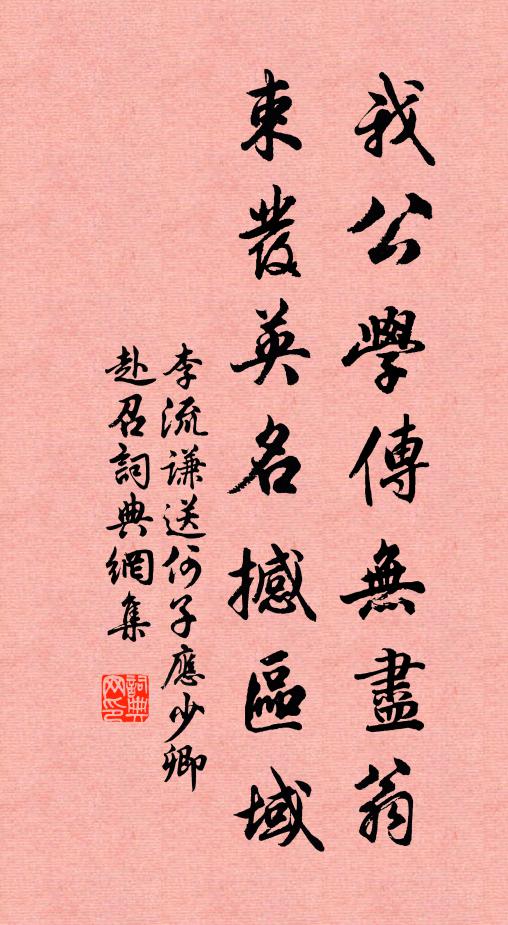 我公學傳無盡翁
束發英名撼區域
李流謙送何子應少卿
赴召詞典網集
詞典
网印